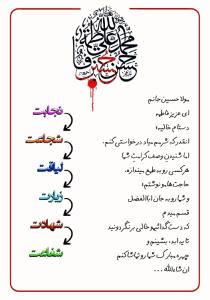 محمد علی فاطمه حسن حسین
مولا حسین جانم
ای عزیز فاطمه
دستام خالیه؛
انقدر که شرمم میاد درخواستی کنم.
اما شنیدن وصف کرامت شما
هرکسی رو به طمع میندازه.
حاجت ها مو نوشتم؛
و شما رو به جان اباالفضل
قسم میدم
که دست گدا خالی برنگردونید
تا ابد، بشینم و
چهره مبارک شما رو تماشا کنم
ان شاءالله ...
نجابت
شجاعت
لیاقت
زیارت
شهادت
شفاعت